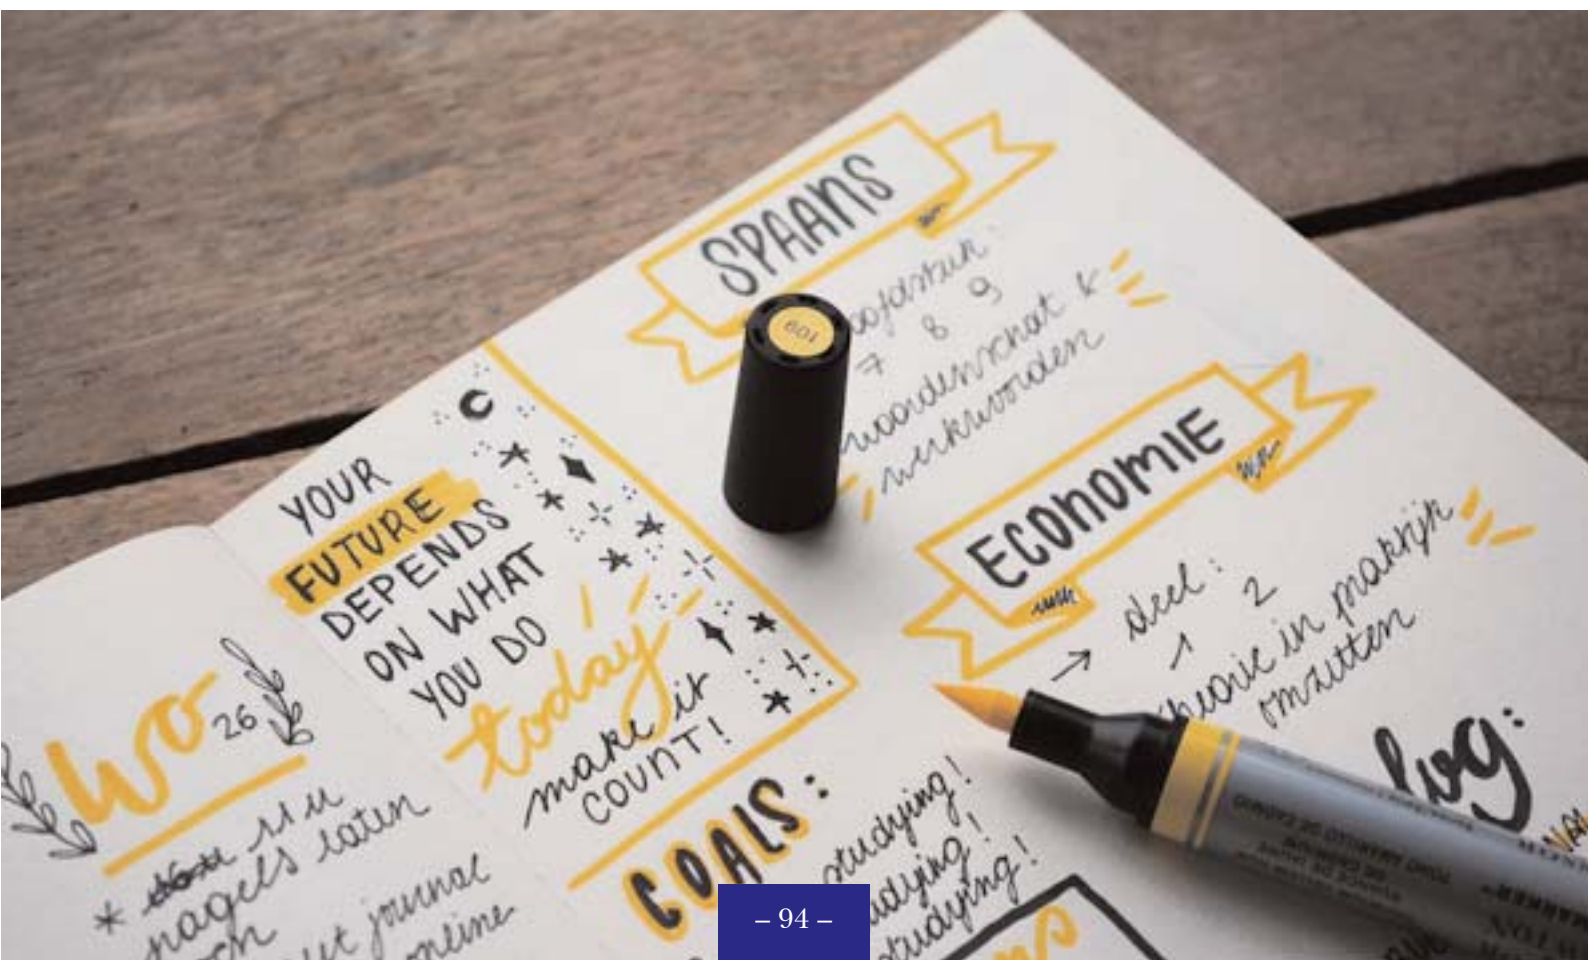 SPAANS
7 8 9
woordenschat &
werkwoorden
109
ECONOMIE
→ deel:
1 2
theorie in praktijk
omzetten
YOUR
FUTURE
DEPENDS
ON WHAT
YOU DO
today
make it
COUNT!
wo
26
* 11 u
nagels laten
journal
online
GOALS:
studying!
studying!
studying!
TONO AMARILLO DE CADMIO
– 94 –